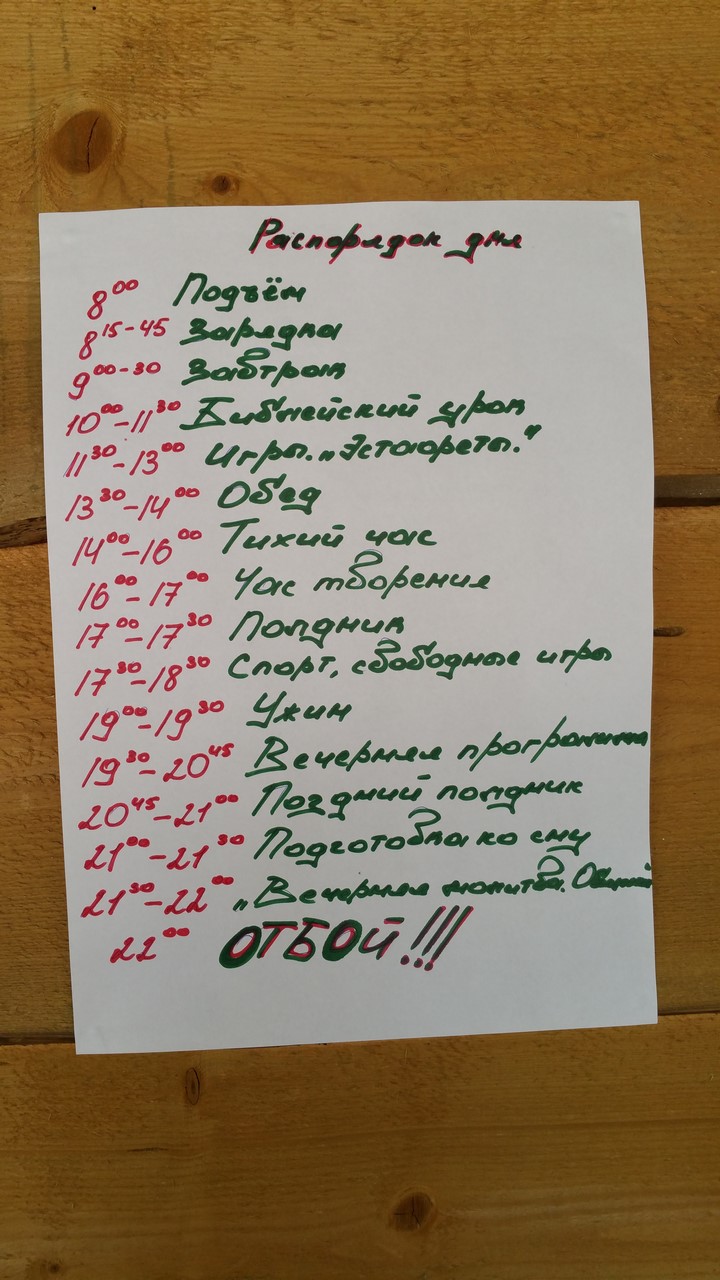 Распорядок дня
8⁰⁰ Подъём
8¹⁵⁻⁴⁵ Зарядка
9⁰⁰⁻³⁰ Завтрак
10⁰⁰-11³⁰ Библейский урок
11³⁰-13⁰⁰ Игры. „Эстафреты."
13³⁰-14⁰⁰ Обед
14⁰⁰-16⁰⁰ Тихий час
16⁰⁰-17⁰⁰ Час творения
17⁰⁰-17³⁰ Полдник
17³⁰-18³⁰ Спорт, свободные игры
19⁰⁰-19³⁰ Ужин
19³⁰-20⁴⁵ Вечерняя программа
20⁴⁵-21⁰⁰ Поздний полдник
21⁰⁰-21³⁰ Подготовка ко сну
21³⁰-22⁰⁰ „Вечерняя молитва.
22⁰⁰ ОТБОЙ!!!